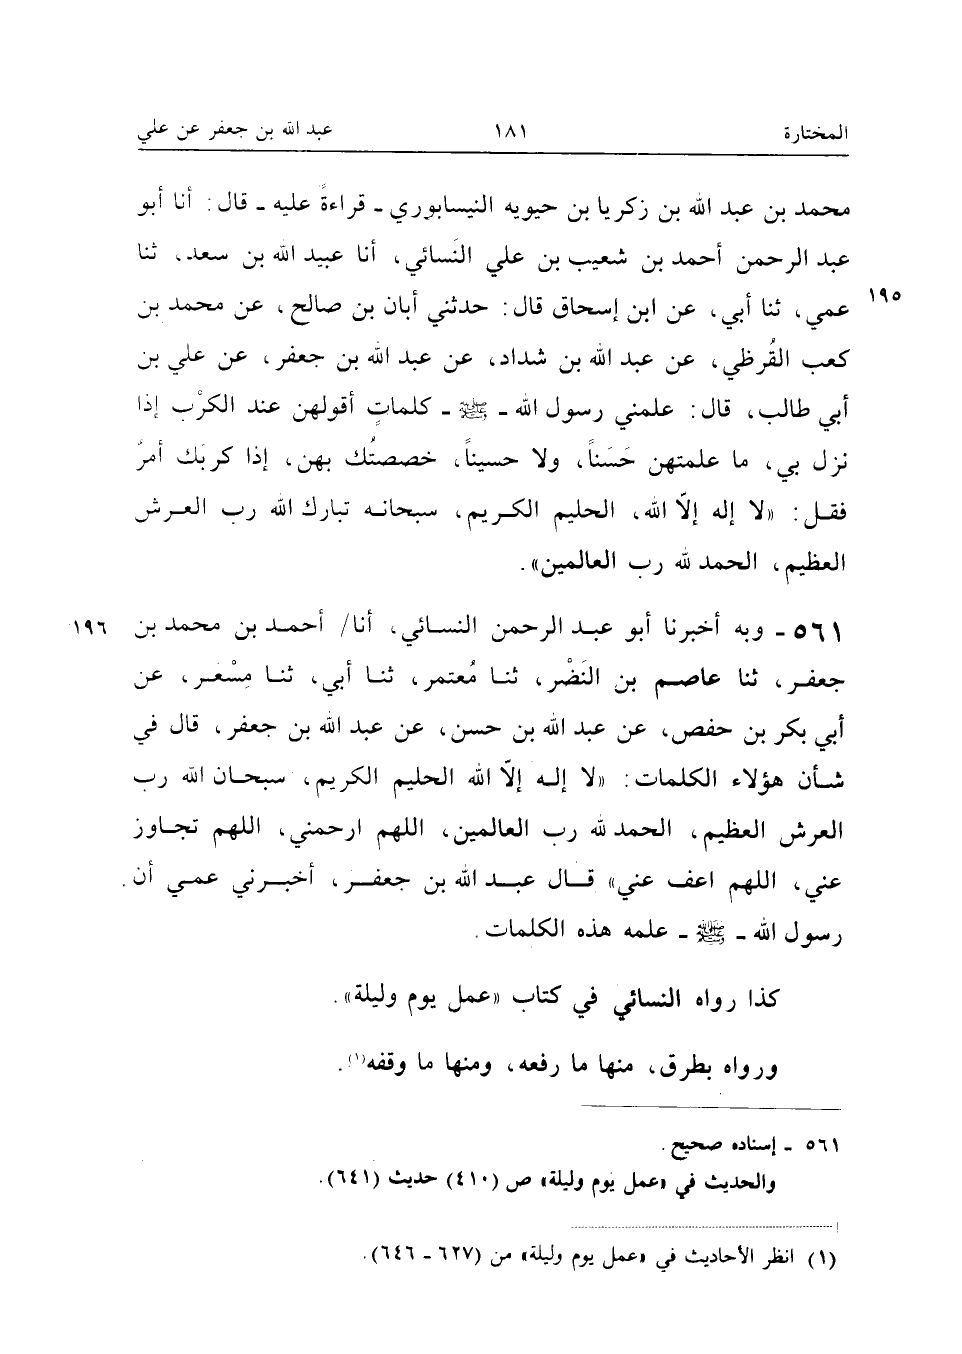 المختارة ١٨١ عبد الله بن جعفر عن علي
محمد بن عبد الله بن زكريا بن حيويه النيسابوري ـ قراءةً عليه ـ قال: أنا أبو
عبد الرحمن أحمد بن شعيب بن علي النَسائي، أنا عبيد الله بن سعد، ثنا
عمي، ثنا أبي، عن ابن إسحاق قال: حدثني أبان بن صالح، عن محمد بن ١٩٥
كعب القُرظي، عن عبد الله بن شداد، عن عبد الله بن جعفر، عن علي بن
أبي طالب، قال: علمني رسول الله ـ ﷺ ـ كلماتٍ أقولهن عند الكرْب إذا
نزل بي، ما علمتهن حَسَناً، ولا حسيناً، خصصتُك بهن، إذا كربَك أمرٌ
فقل: «لا إله إلّا الله، الحليم الكريم، سبحانه تبارك الله رب العرش
العظيم، الحمد لله رب العالمين».
٥٦١ ـ وبه أخبرنا أبو عبد الرحمن النسائي، أنا/ أحمد بن محمد بن ١٩٦
جعفر، ثنا عاصم بن النَضْر، ثنا مُعتمر، ثنا أبي، ثنا مِسْعر، عن
أبي بكر بن حفص، عن عبد الله بن حسن، عن عبد الله بن جعفر، قال في
شأن هؤلاء الكلمات: «لا إله إلّا الله الحليم الكريم، سبحان الله رب
العرش العظيم، الحمد لله رب العالمين، اللهم ارحمني، اللهم تجاوز
عني، اللهم اعف عني» قال عبد الله بن جعفر، أخبرني عمي أن
رسول الله ـ ﷺ ـ علمه هذه الكلمات.
كذا رواه النسائي في كتاب «عمل يوم وليلة».
ورواه بطرق، منها ما رفعه، ومنها ما وقفه(١).
٥٦١ ـ إسناده صحيح.
والحديث في «عمل يوم وليلة» ص (٤١٠) حديث (٦٤١).
(١) انظر الأحاديث في «عمل يوم وليلة» من (٦٢٧ ـ ٦٤٦).